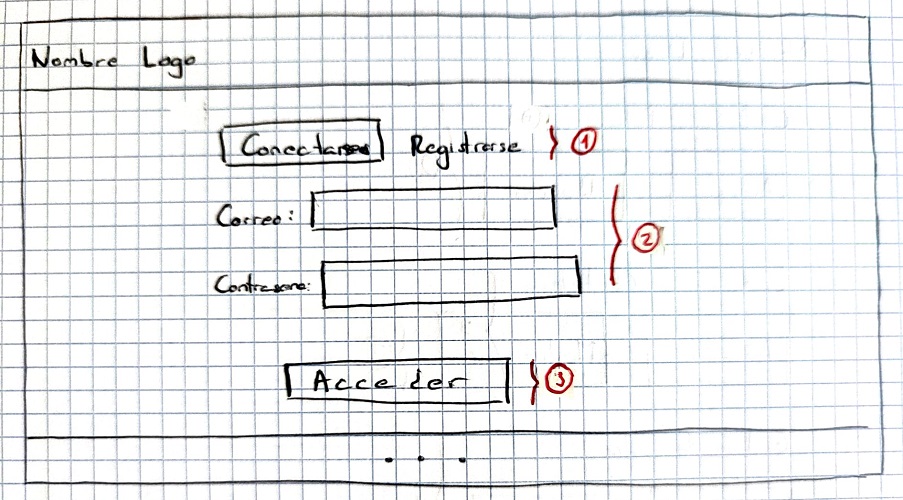 Nombre Logo
Conectarse Registrarse } ①
Correo: } ②
Contraseña:
Acceder } ③
. . .